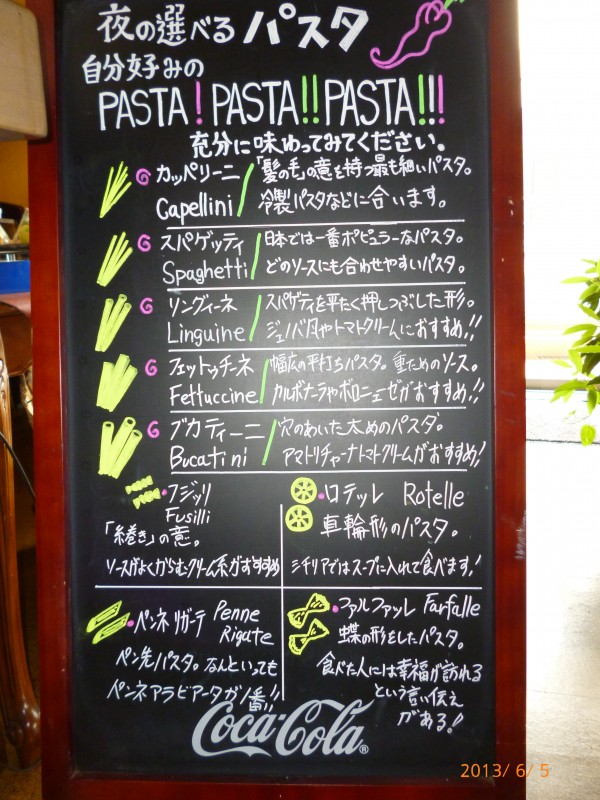 夜の選べるパスタ
自分好みの
PASTA! PASTA!! PASTA!!!
充分に味わってみてください。
カッペリーニ Capellini
「髪の毛」の意を持つ最も細いパスタ。
冷製パスタなどに合います。
スパゲッティ Spaghetti
日本では一番ポピュラーなパスタ。
どのソースにも合わせやすいパスタ。
リングイーネ Linguine
スパゲティを平たく押しつぶした形。
ジェノバ風やトマトクリームにおすすめ!!
フェットゥチーネ Fettuccine
幅広の平打ちパスタ。重ためのソース。
カルボナーラやボロニェーゼがおすすめ!!
ブカティーニ Bucatini
穴のあいた太めのパスタ。
アマトリチャーナトマトクリームがおすすめ!
フジッリ
Fusilli
「糸巻き」の意。
ソースがよくからむクリーム系がおすすめ
ロテッレ Rotelle
車輪形のパスタ。
シチリアではスープに入れて食べます!
ペンネリガーテ Penne Rigate
ペン先パスタ。なんといっても
ペンネアラビアータが1番!!
ファルファッレ Farfalle
蝶の形をしたパスタ。
食べた人には幸福が訪れる
という言い伝え
がある!
Coca-Cola®
2013/ 6/ 5